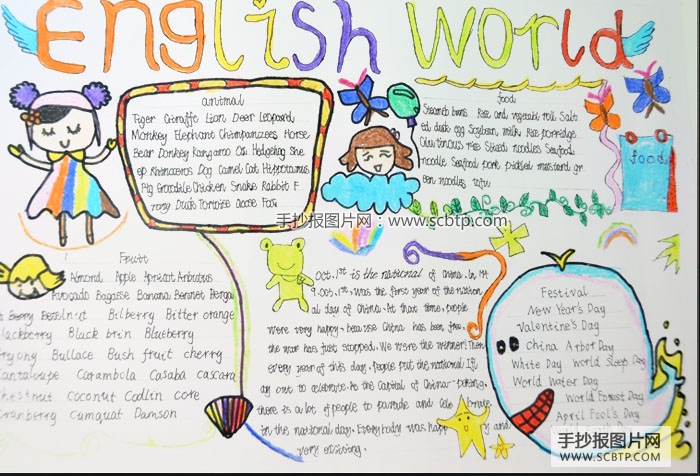 English World
animal
Tiger Giraffe Lion Deer Leopard
Monkey Elephant Chimpanzees Horse
Bear Donkey Kangaroo Ox Hedgehog She
ep Rhinoceros Dog Camel Cat Hippotamus
Pig Grocodile Chicken Snake Rabbit F
rong Duck Tortoise Goose Fox
food
Steamed buns Rice and vegetable roll Salt
ed duck egg Soybean milk Rice porridge
Glutinous rice Sliced noodles Seafood
noodle Seafood pork pickled mustard gr
een noodles tofu
food
手抄报图片网:www.scbtp.com
Fruit
Almond Apple Apricot Arbutus
Avocado Bagasse Banana Bennet Benga
Bilberry Bitter orange
Blackberry Black brin Blueberry
Bryony Bullace Bush fruit cherry
Cantaloupe Carambola Casaba cascara
Chestnut Coconut Codlin core
Cranberry Cumquat Damson
Oct.1st is the national of china. In 194
9.oct.1st, was the first year of the nation
al day of China. At that time, people
were very happy. because China has been free.
the war has just stopped. We were the winner! Then
every year of this day. people put the national
ay out to celebrate. At the capital of China-
there is a lot of people to parade and cele brate
in the national day. Everybody was happy and
very exciting.
Festival
New Year's Day
Valentine's Day
China Arbor Day
White Day World Sleep Day
World Water Day
World Forest Day
April Fool's Day
手抄报图片网
WWW.SCBTP.COM